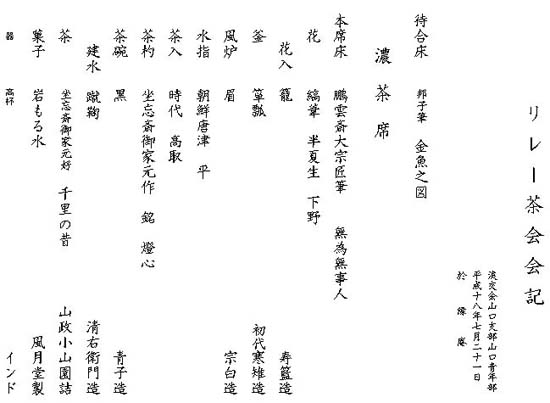 リレー茶会会記
淡交会山口支部山口青年部
平成十八年七月二十一日
於 緑庵
待合床 邦子筆 金魚之図
濃茶席
本席床 鵬雲斎大宗匠筆 無為無事人
花 縞葦 半夏生 下野
花入 籠 寿籃造
釜 箪瓢 初代寒雉造
風炉 眉 宗白造
水指 朝鮮唐津 平
茶入 時代 高取
茶杓 坐忘斎御家元作 銘 燈心
茶碗 黒 青子造
建水 蹴鞠 清右衛門造
茶 坐忘斎御家元好 千里の昔 山政小山園詰
菓子 岩もる水 風月堂製
器 高杯 インド